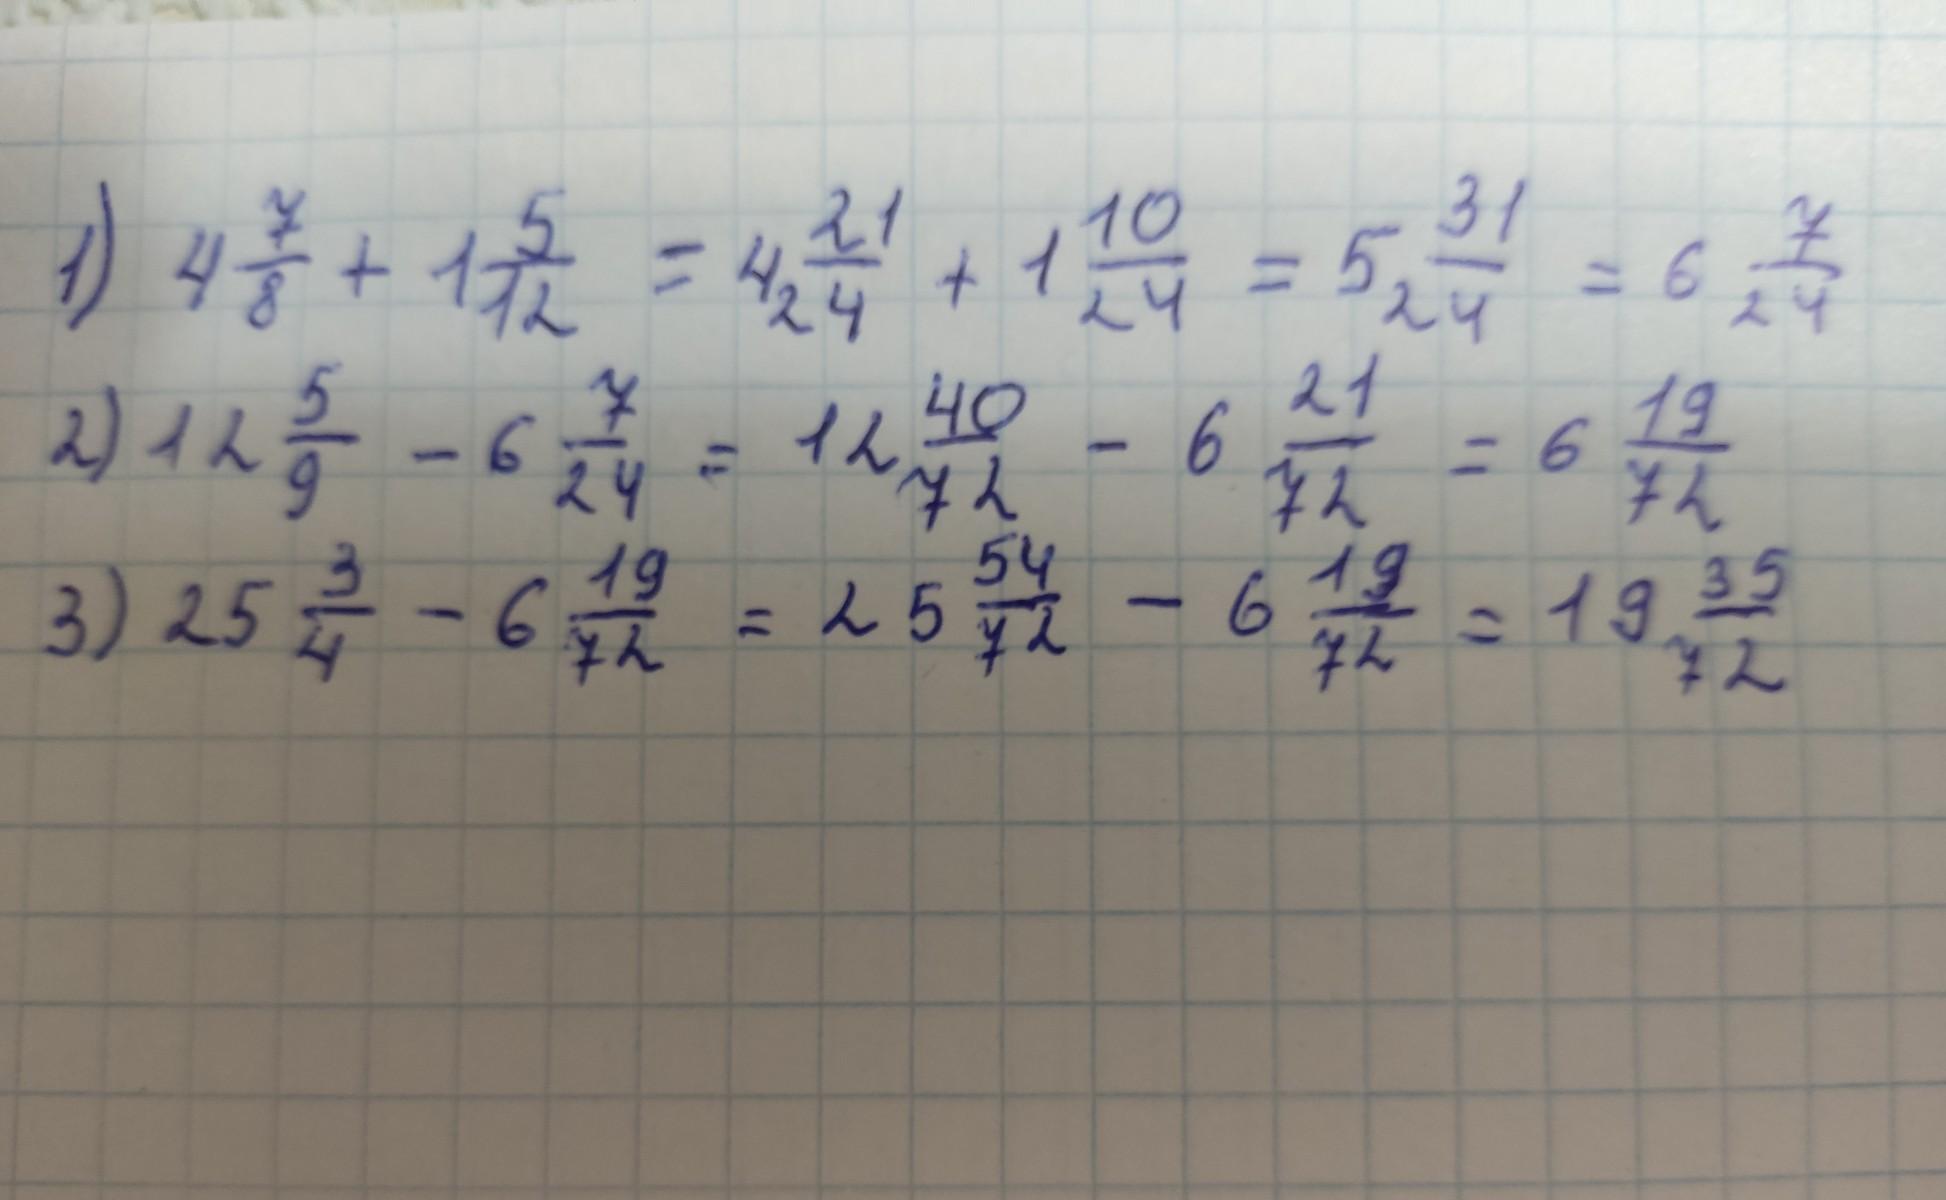 1) 4 7/8 + 1 5/12 = 4 21/24 + 1 10/24 = 5 31/24 = 6 7/24
2) 12 5/9 - 6 7/24 = 12 40/72 - 6 21/72 = 6 19/72
3) 25 3/4 - 6 19/72 = 25 54/72 - 6 19/72 = 19 35/72